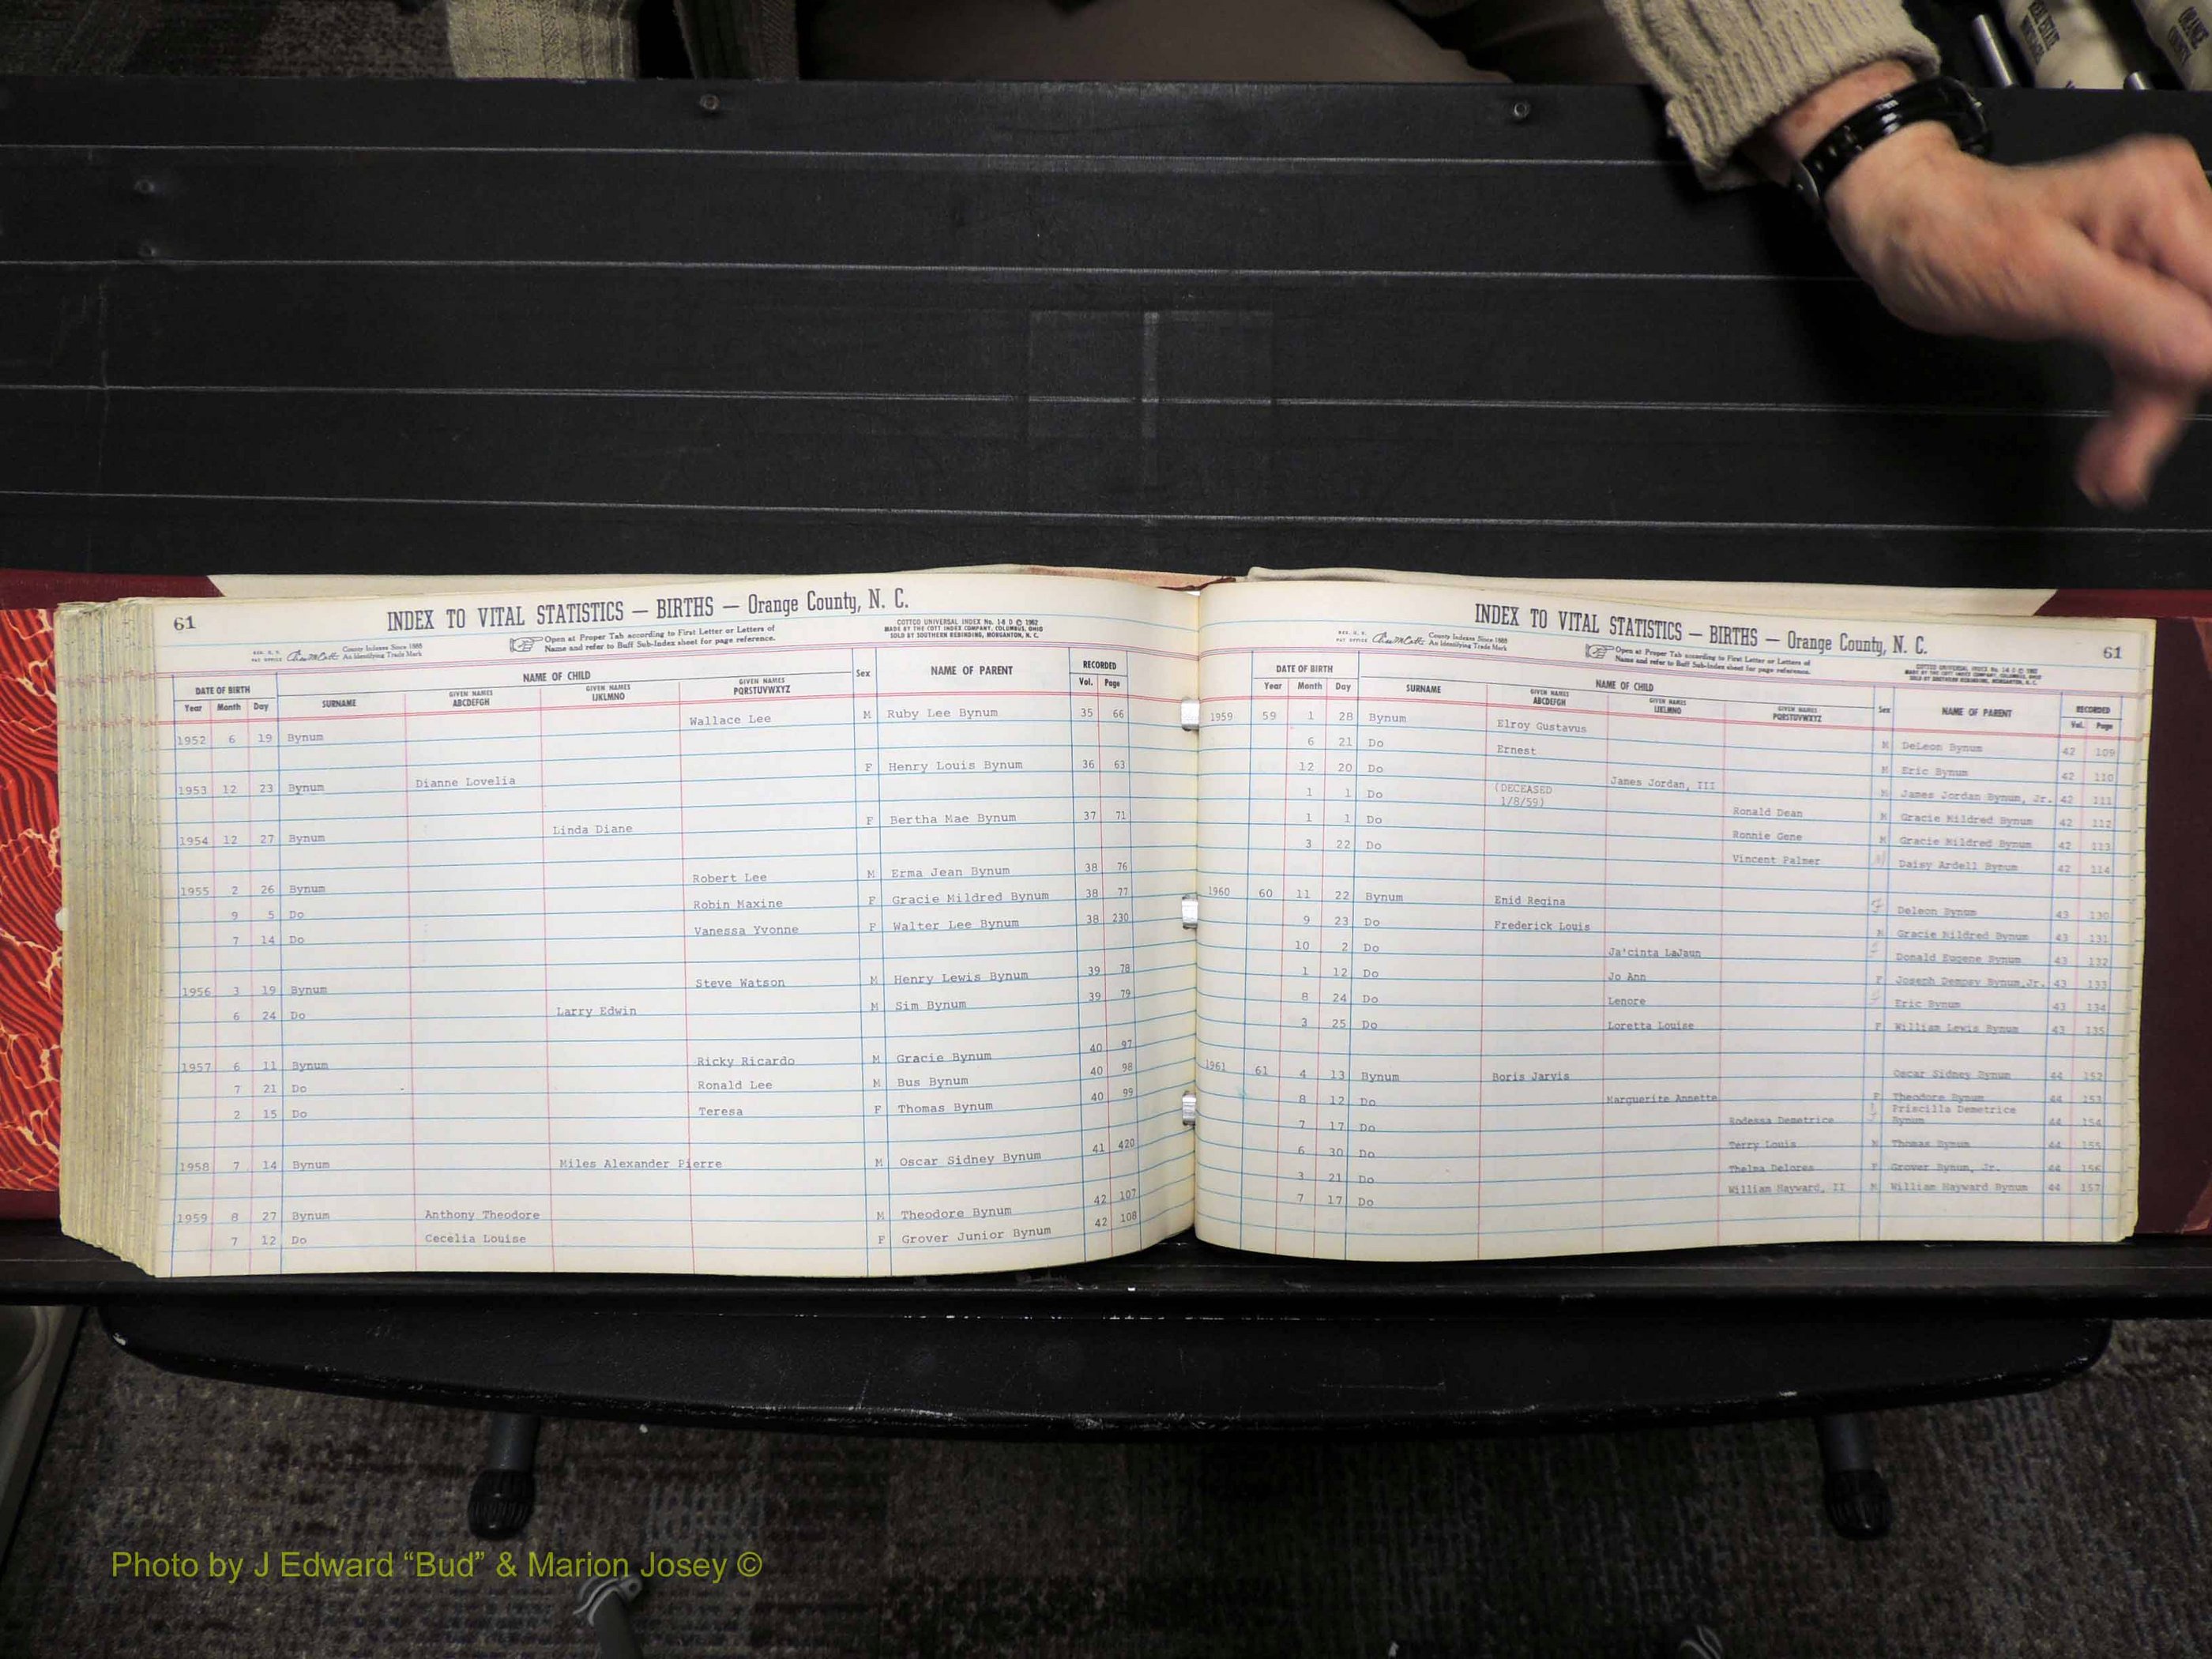 61
INDEX TO VITAL STATISTICS — BIRTHS — Orange County, N. C.
COTTCO UNIVERSAL INDEX No. 14 D © 1962
MADE BY THE COTT INDEX COMPANY, COLUMBUS, OHIO
SOLD BY SOUTHERN REBINDING, MORGANTON, N. C.
County Indexes Since 1888
An Identifying Trade Mark
Open at Proper Tab according to First Letter or Letters of
Name and refer to Buff Sub-Index sheet for page reference.
DATE OF BIRTH NAME OF CHILD Sex NAME OF PARENT RECORDED
Year Month Day SURNAME GIVEN NAMES ABCDEFGH GIVEN NAMES IJKLMNO GIVEN NAMES PQRSTUVWXYZ Vol. Page
1952 6 19 Bynum Wallace Lee M Ruby Lee Bynum 35 66
1953 12 23 Bynum Dianne Lovelia F Henry Louis Bynum 36 63
1954 12 27 Bynum Linda Diane F Bertha Mae Bynum 37 71
1955 2 26 Bynum Robert Lee M Erma Jean Bynum 38 76
9 5 Do Robin Maxine F Gracie Mildred Bynum 38 77
7 14 Do Vanessa Yvonne F Walter Lee Bynum 38 230
1956 3 19 Bynum Steve Watson M Henry Lewis Bynum 39 78
6 24 Do Larry Edwin M Sim Bynum 39 79
1957 6 11 Bynum Ricky Ricardo M Gracie Bynum 40 97
7 21 Do Ronald Lee M Bus Bynum 40 98
2 15 Do Teresa F Thomas Bynum 40 99
1958 7 14 Bynum Miles Alexander Pierre M Oscar Sidney Bynum 41 420
1959 8 27 Bynum Anthony Theodore M Theodore Bynum 42 107
7 12 Do Cecelia Louise F Grover Junior Bynum 42 108
INDEX TO VITAL STATISTICS — BIRTHS — Orange County, N. C.
61
County Indexes Since 1888
An Identifying Trade Mark
Open at Proper Tab according to First Letter or Letters of
Name and refer to Buff Sub-Index sheet for page reference.
DATE OF BIRTH NAME OF CHILD Sex NAME OF PARENT RECORDED
Year Month Day SURNAME GIVEN NAMES ABCDEFGH GIVEN NAMES IJKLMNO GIVEN NAMES PQRSTUVWXYZ Vol. Page
1959 59 1 28 Bynum Elroy Gustavus M DeLeon Bynum 42 109
6 21 Do Ernest M Eric Bynum 42 110
12 20 Do James Jordan, III M James Jordan Bynum, Jr. 42 111
1 1 Do (DECEASED 1/8/59) Ronald Dean M Gracie Mildred Bynum 42 112
1 1 Do Ronnie Gene M Gracie Mildred Bynum 42 113
3 22 Do Vincent Palmer M Daisy Ardell Bynum 42 114
1960 60 11 22 Bynum Enid Regina F Deleon Bynum 43 130
9 23 Do Frederick Louis M Gracie Mildred Bynum 43 131
10 2 Do Ja'cinta LaJaun Donald Eugene Bynum 43 132
1 12 Do Jo Ann F Joseph Dempsy Bynum,Jr. 43 133
8 24 Do Lenore Eric Bynum 43 134
3 25 Do Loretta Louise F William Lewis Bynum 43 135
1961 61 4 13 Bynum Boris Jarvis Oscar Sidney Bynum 44 152
8 12 Do Marguerite Annette F Theodore Bynum 44 153
7 17 Do Rodessa Demetrice Priscilla Demetrice Bynum 44 154
6 30 Do Terry Louis M Thomas Bynum 44 155
3 21 Do Thelma Delores F Grover Bynum, Jr. 44 156
7 17 Do William Hayward, II M William Hayward Bynum 44 157
Photo by J Edward “Bud” & Marion Josey ©